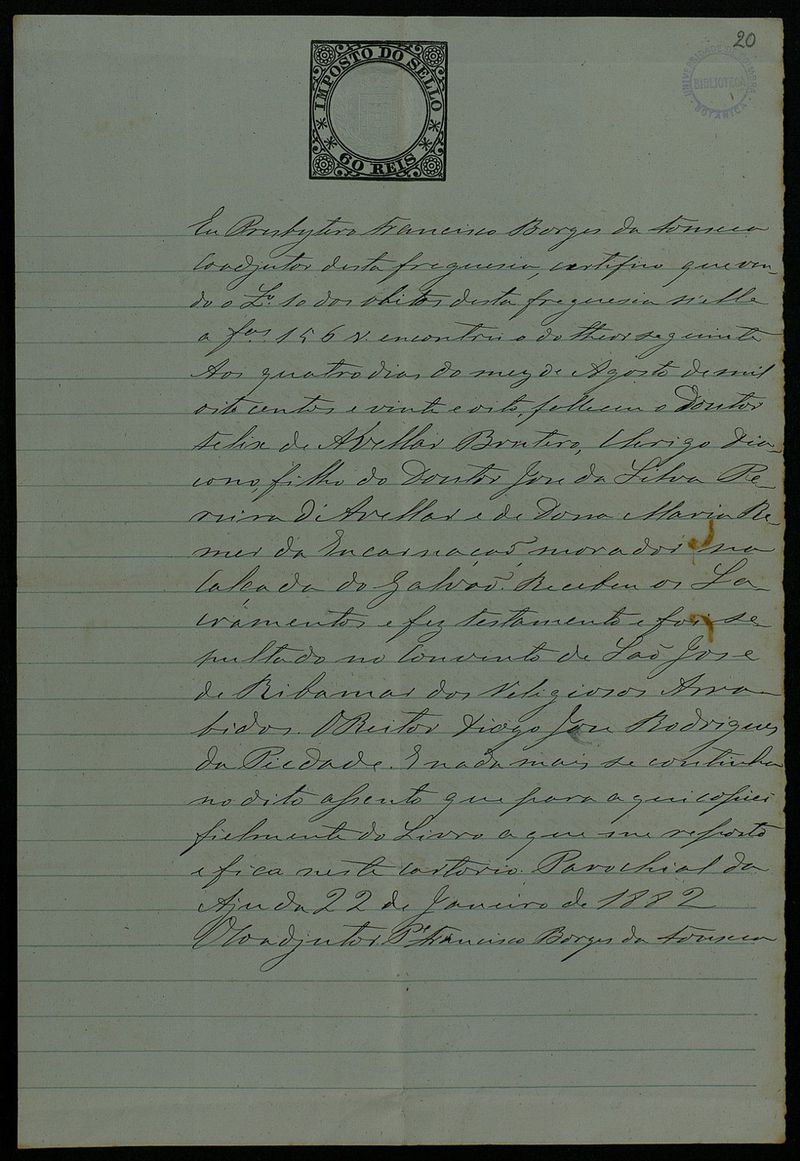 20
IMPOSTO DO SELLO
60 REIS
UNIVERSIDADE DE COIMBRA
BIBLIOTECA
BOTANICA
Eu Presbytero Francisco Borges da Fonseca
Coadjutor desta freguesia, certifico que ven-
do o L.º 10 dos obitos desta freguesia n'elle
a f.as 156 v. encontrei o do theor seguinte
Aos quatro dias do mez de Agosto de mil
oito centos e vinte e oito, falleceu o Doutor
Felix de Avellar Brotero, Clerigo Dia-
cono, filho do Doutor Jose da Silva Pe-
reira d'Avellar e de Dona Maria Re-
mei da Encarnação, morador na
Calçada do Galvão. Recebeu os Sa-
cramentos e fez testamento e foi se-
pultado no Convento de São Jose
de Ribamar dos Religiosos Arra-
bidos. O Reitor Diogo Jose Rodrigues
da Piedade. E nada mais se continha
no dito assento que para aqui copiei
fielmente do Livro a que me reporto
e fica neste cartorio Parochial da
Ajuda 22 de Janeiro de 1882
O Coadjutor P.e Francisco Borges da Fonseca